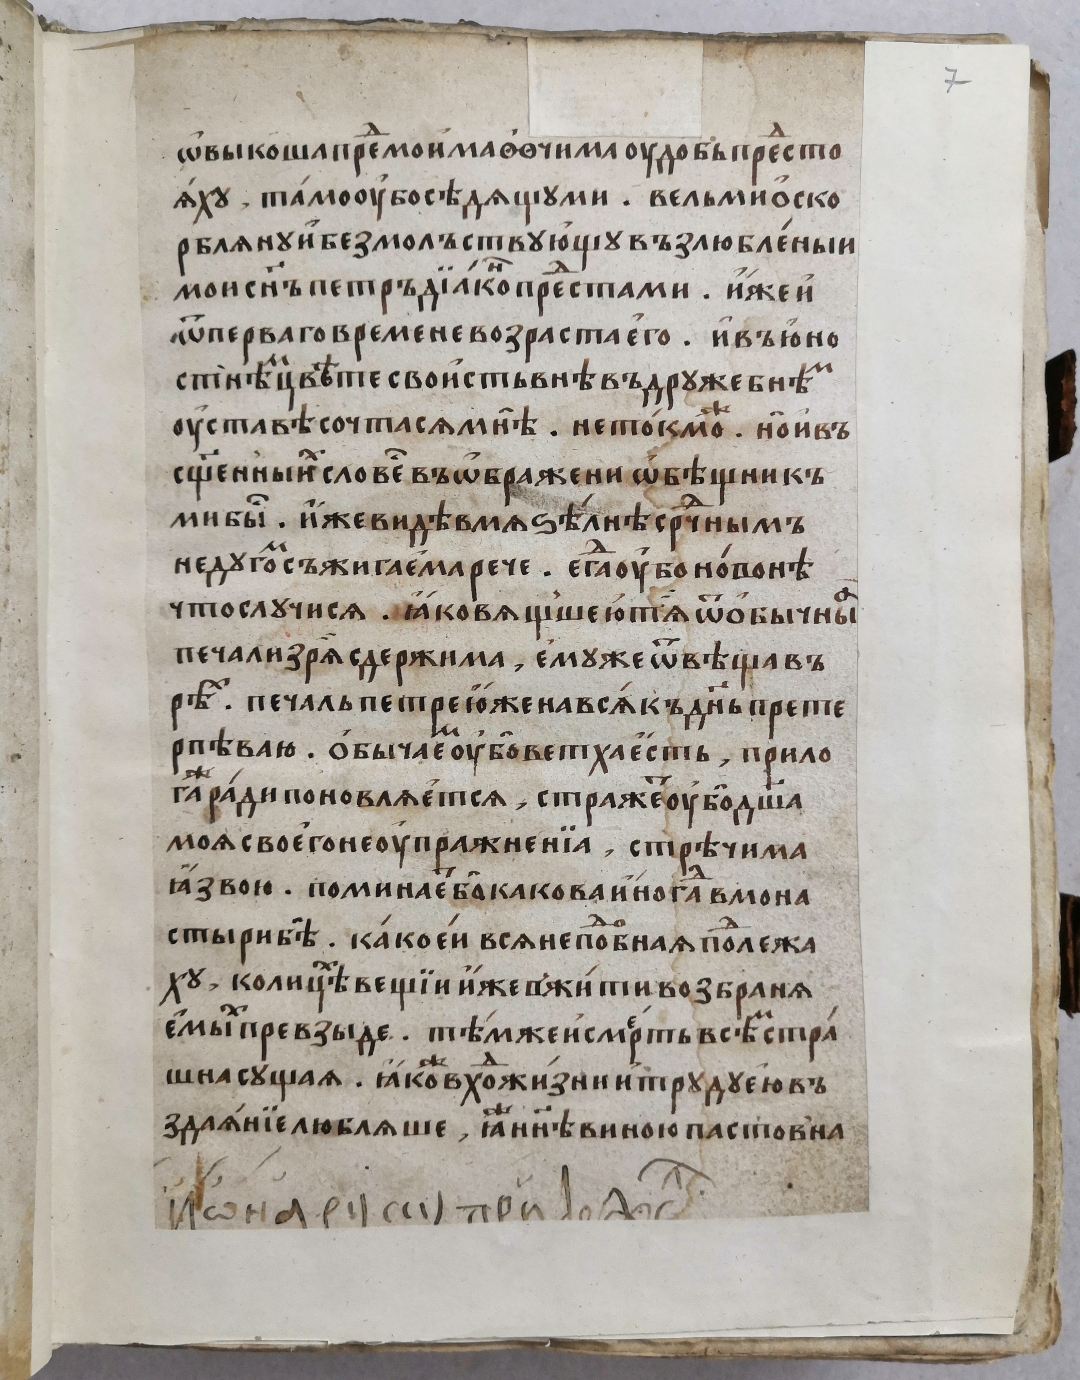 7
ѡ҆выкоша прⷣемои́ма ꙫ҆чима оудобь прⷣесто
ѧ́хꙋ , та́мо оу҆бо сѣдѧщꙋ ми . вельми ѻ҆ско
рблѧнꙋ и҆ безмолъствꙋю́щꙋ възлюбле́ныи
мои сн҃ъ петръ дїа́кⷩо прⷣеста ми . и҆́же и҆
ѿ перваго времене возраста е҆го . и҆ въ ю҆но
стнѣⷨ цвѣ́те свои҆сть внѣ въ дрꙋжебнѣⷨ
оу҆ставѣ сочтасѧ мнѣ̀ . не то́кмѡⷤ . но̀ и҆ въ
сщ҃енны́иⷯ словесⷭ҇ въ ѡ҆бражени ѡ҆бѣщникъ
ми бы̀ . и҆́же видѣв мѧ ѕѣ́лнѣ срⷣчнымъ
недꙋгоⷨ съжигае́ма рече . е҆гⷣа оу҆бо но́во нѣ
что слꙋчисѧ . ꙗ҆ко вѧщ҆шею тѧ̀ ѿ ѻ҆бычныⷪ҇
печали зрѧ̀ сдержима , е҆мꙋже ѿвѣщавъ
рѣⷯ . печаль петре ю҆́же на всѧ́къ дн҃ь прете
рпѣваю . ѻ҆быча́еⷨ оу҆бо̀ ветха е҆́сть , прило
гаⷤ ра́ди поновлѧ́етсѧ , стражеⷮ оу҆бо̀ дш҃а
моѧ своего̀ неоу҆пражненїа , стрѣчима
ꙗ҆звою . поминаеⷮ бо̀ какова и҆ногⷣа в мона
стыри бѣ̀ . ка́ко е҆́и всѧ непⷣобнаѧ пⷣолежа
хꙋ , колицⷯѣ вещїи и҆́же в жи́ти возбранѧ
е҆мыⷯ превзыде . тѣ́мже и҆ сме́рть всѣⷨ стра́
шна сꙋщаѧ . ꙗ҆коⷤ вхⷣо жи́зни и҆ трꙋдꙋ е҆ю въ
здаѧ́нїе люблѧше , ꙗ҆ⷤ нн҃ѣ виною пастов̾на